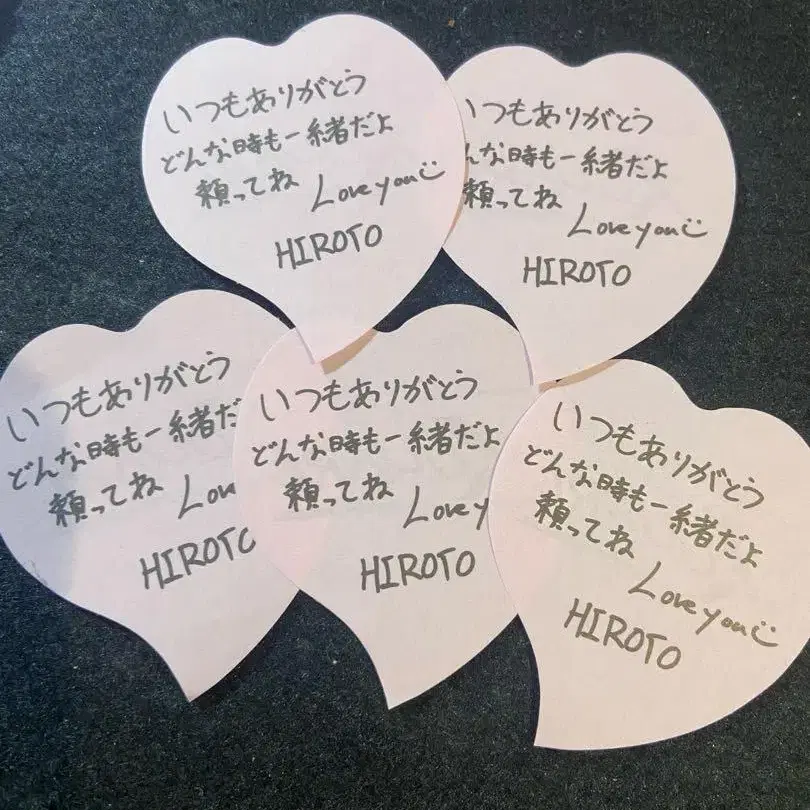 いつもありがとう
どんな時も一緒だよ
頼ってね Love you
HIROTO
いつもありがとう
んな時も一緒だよ
頼ってね Love you
HIROTO
いつもありがとう
どんな時も一緒だ
頼ってね Lov
HIROTO
いつもありがとう
どんな時も一緒だよ
頼ってね Lovey
HIROTO
いつもありがとう
どんな時も一緒だよ
頼ってね Love you
HIROTO